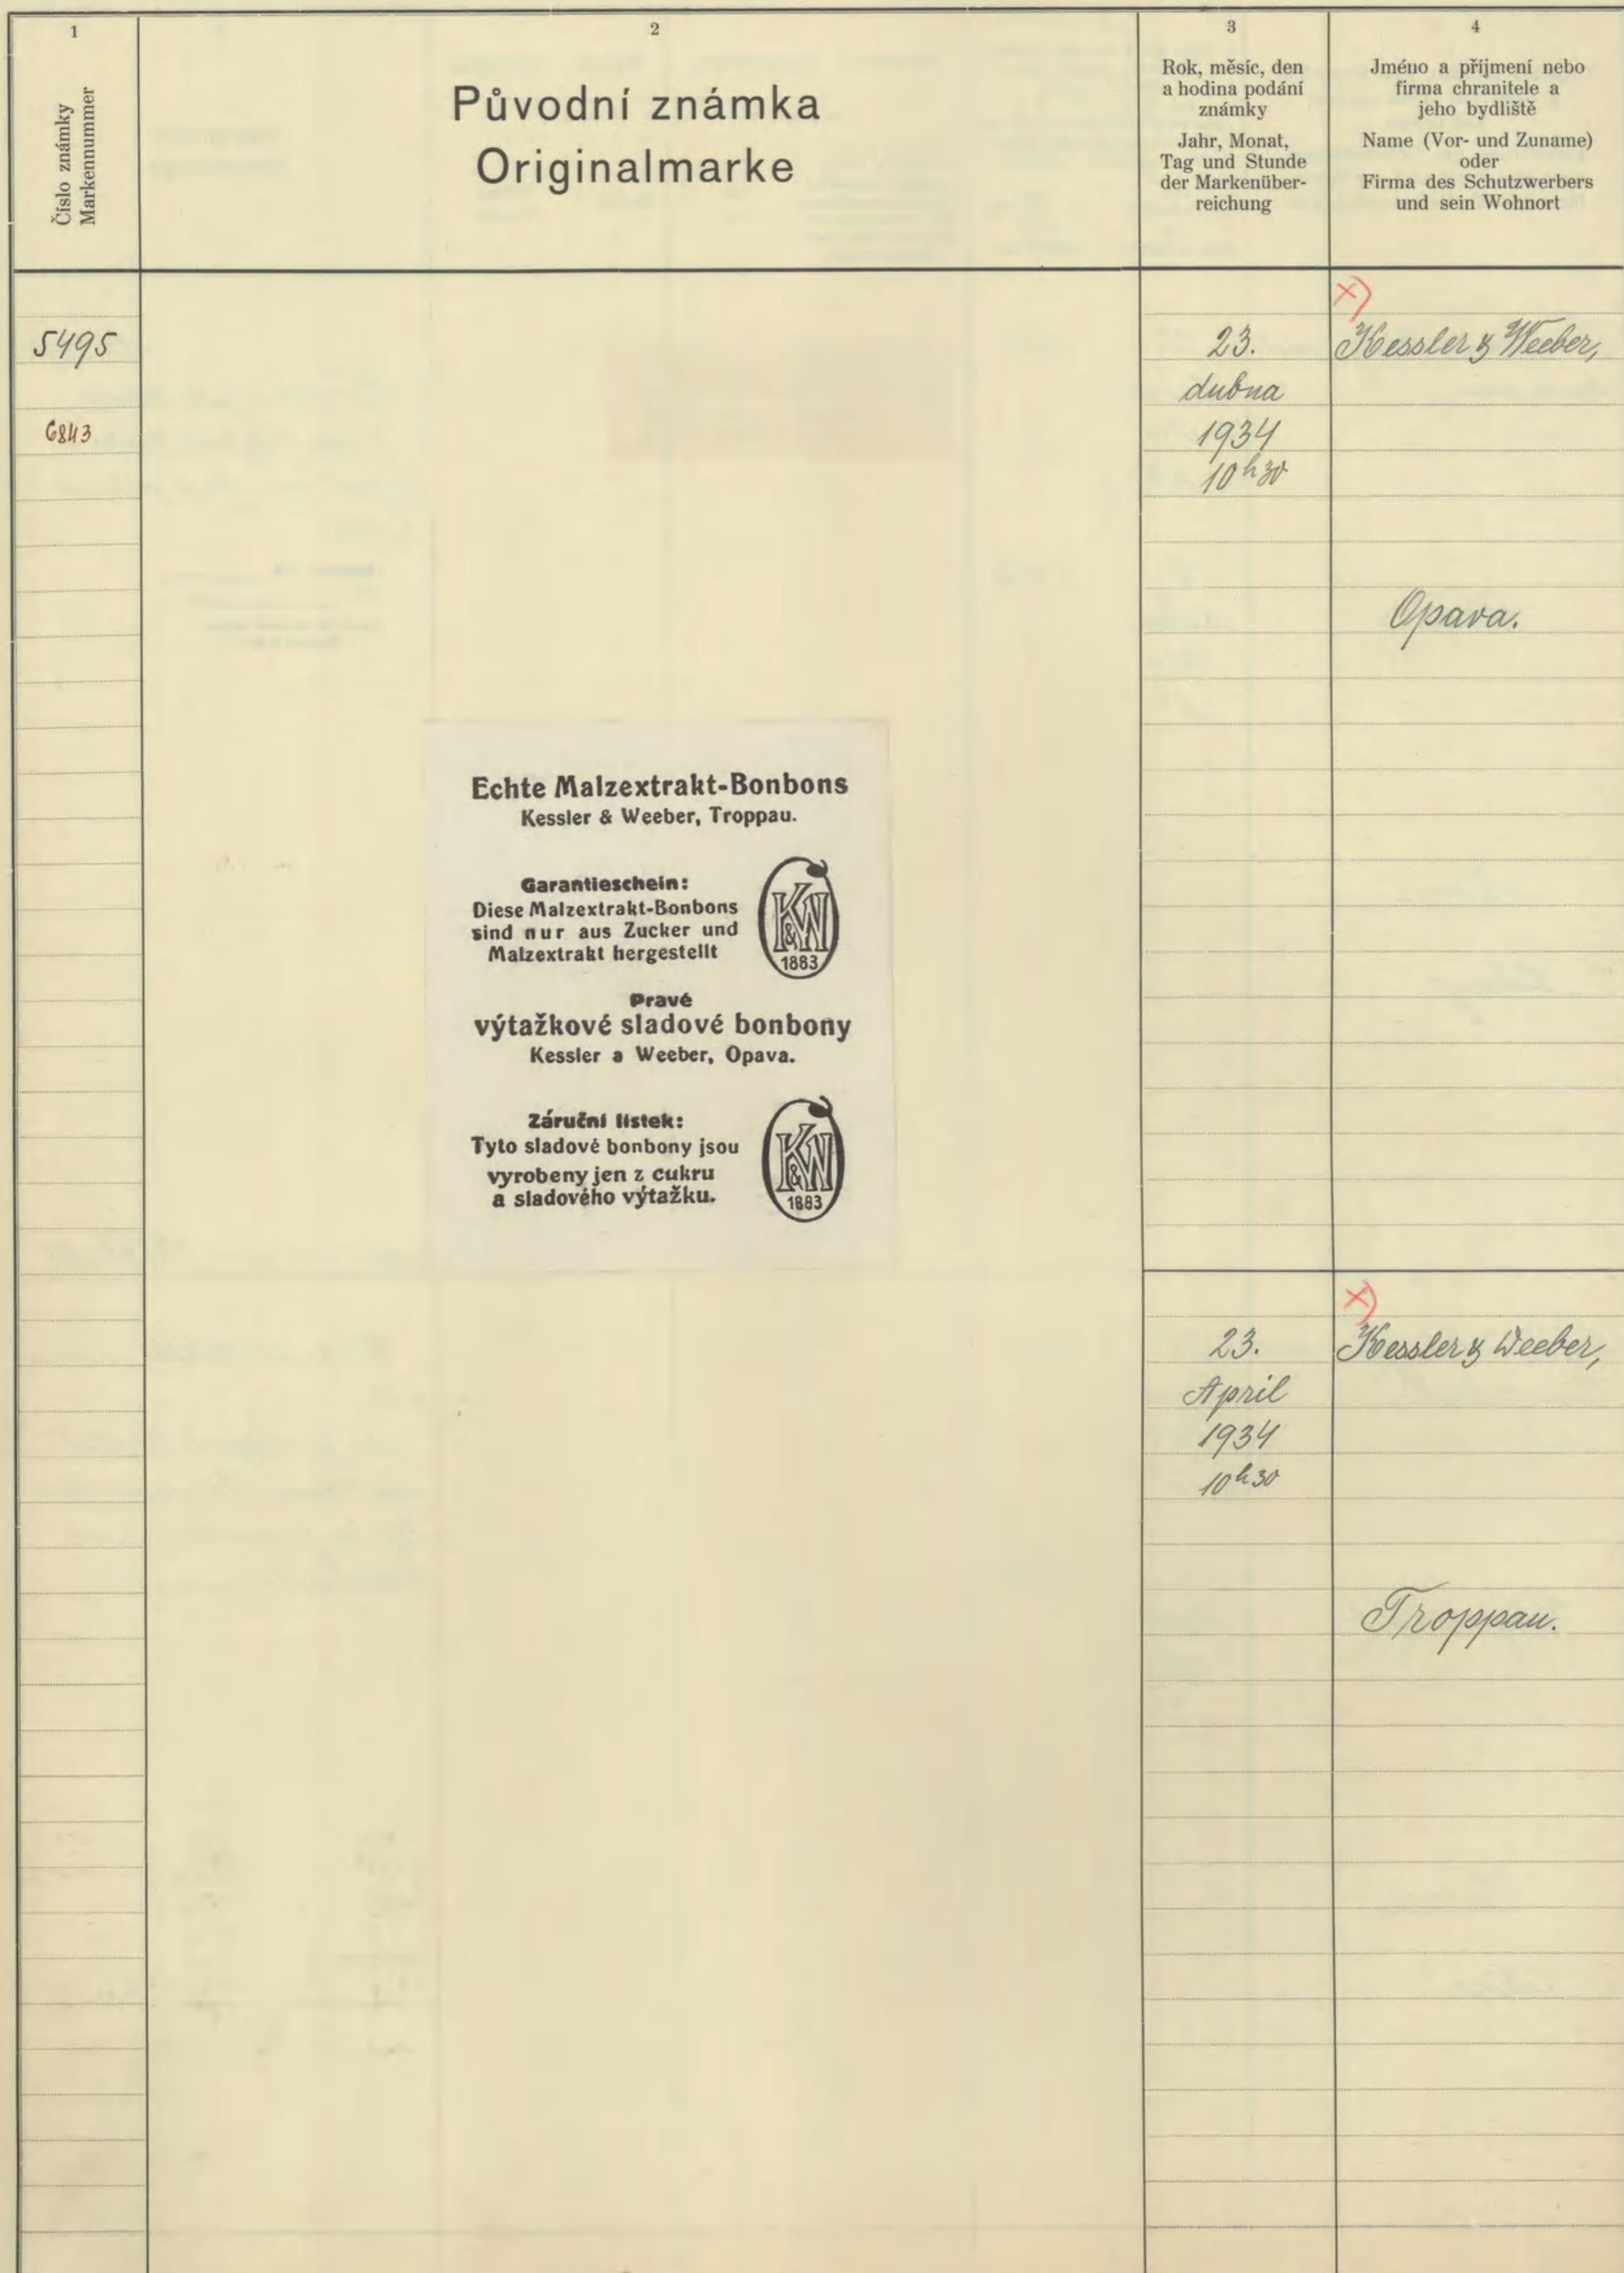 1
Číslo známky
Markennummer
2
Původní známka
Originalmarke
3
Rok, měsíc, den
a hodina podání
známky
Jahr, Monat,
Tag und Stunde
der Markenüber-
reichung
4
Jméno a příjmení nebo
firma chranitele a
jeho bydliště
Name (Vor- und Zuname)
oder
Firma des Schutzwerbers
und sein Wohnort
5495
6843
23.
dubna
1934
10 h 30
x)
Kessler & Weeber,
Opava.
Echte Malzextrakt-Bonbons
Kessler & Weeber, Troppau.
Garantieschein:
Diese Malzextrakt-Bonbons
sind nur aus Zucker und
Malzextrakt hergestellt
K&W
1883
Pravé
výtažkové sladové bonbony
Kessler a Weeber, Opava.
Záruční lístek:
Tyto sladové bonbony jsou
vyrobeny jen z cukru
a sladového výtažku.
K&W
1883
23.
April
1934
10 h 30
x)
Kessler & Weeber,
Troppau.